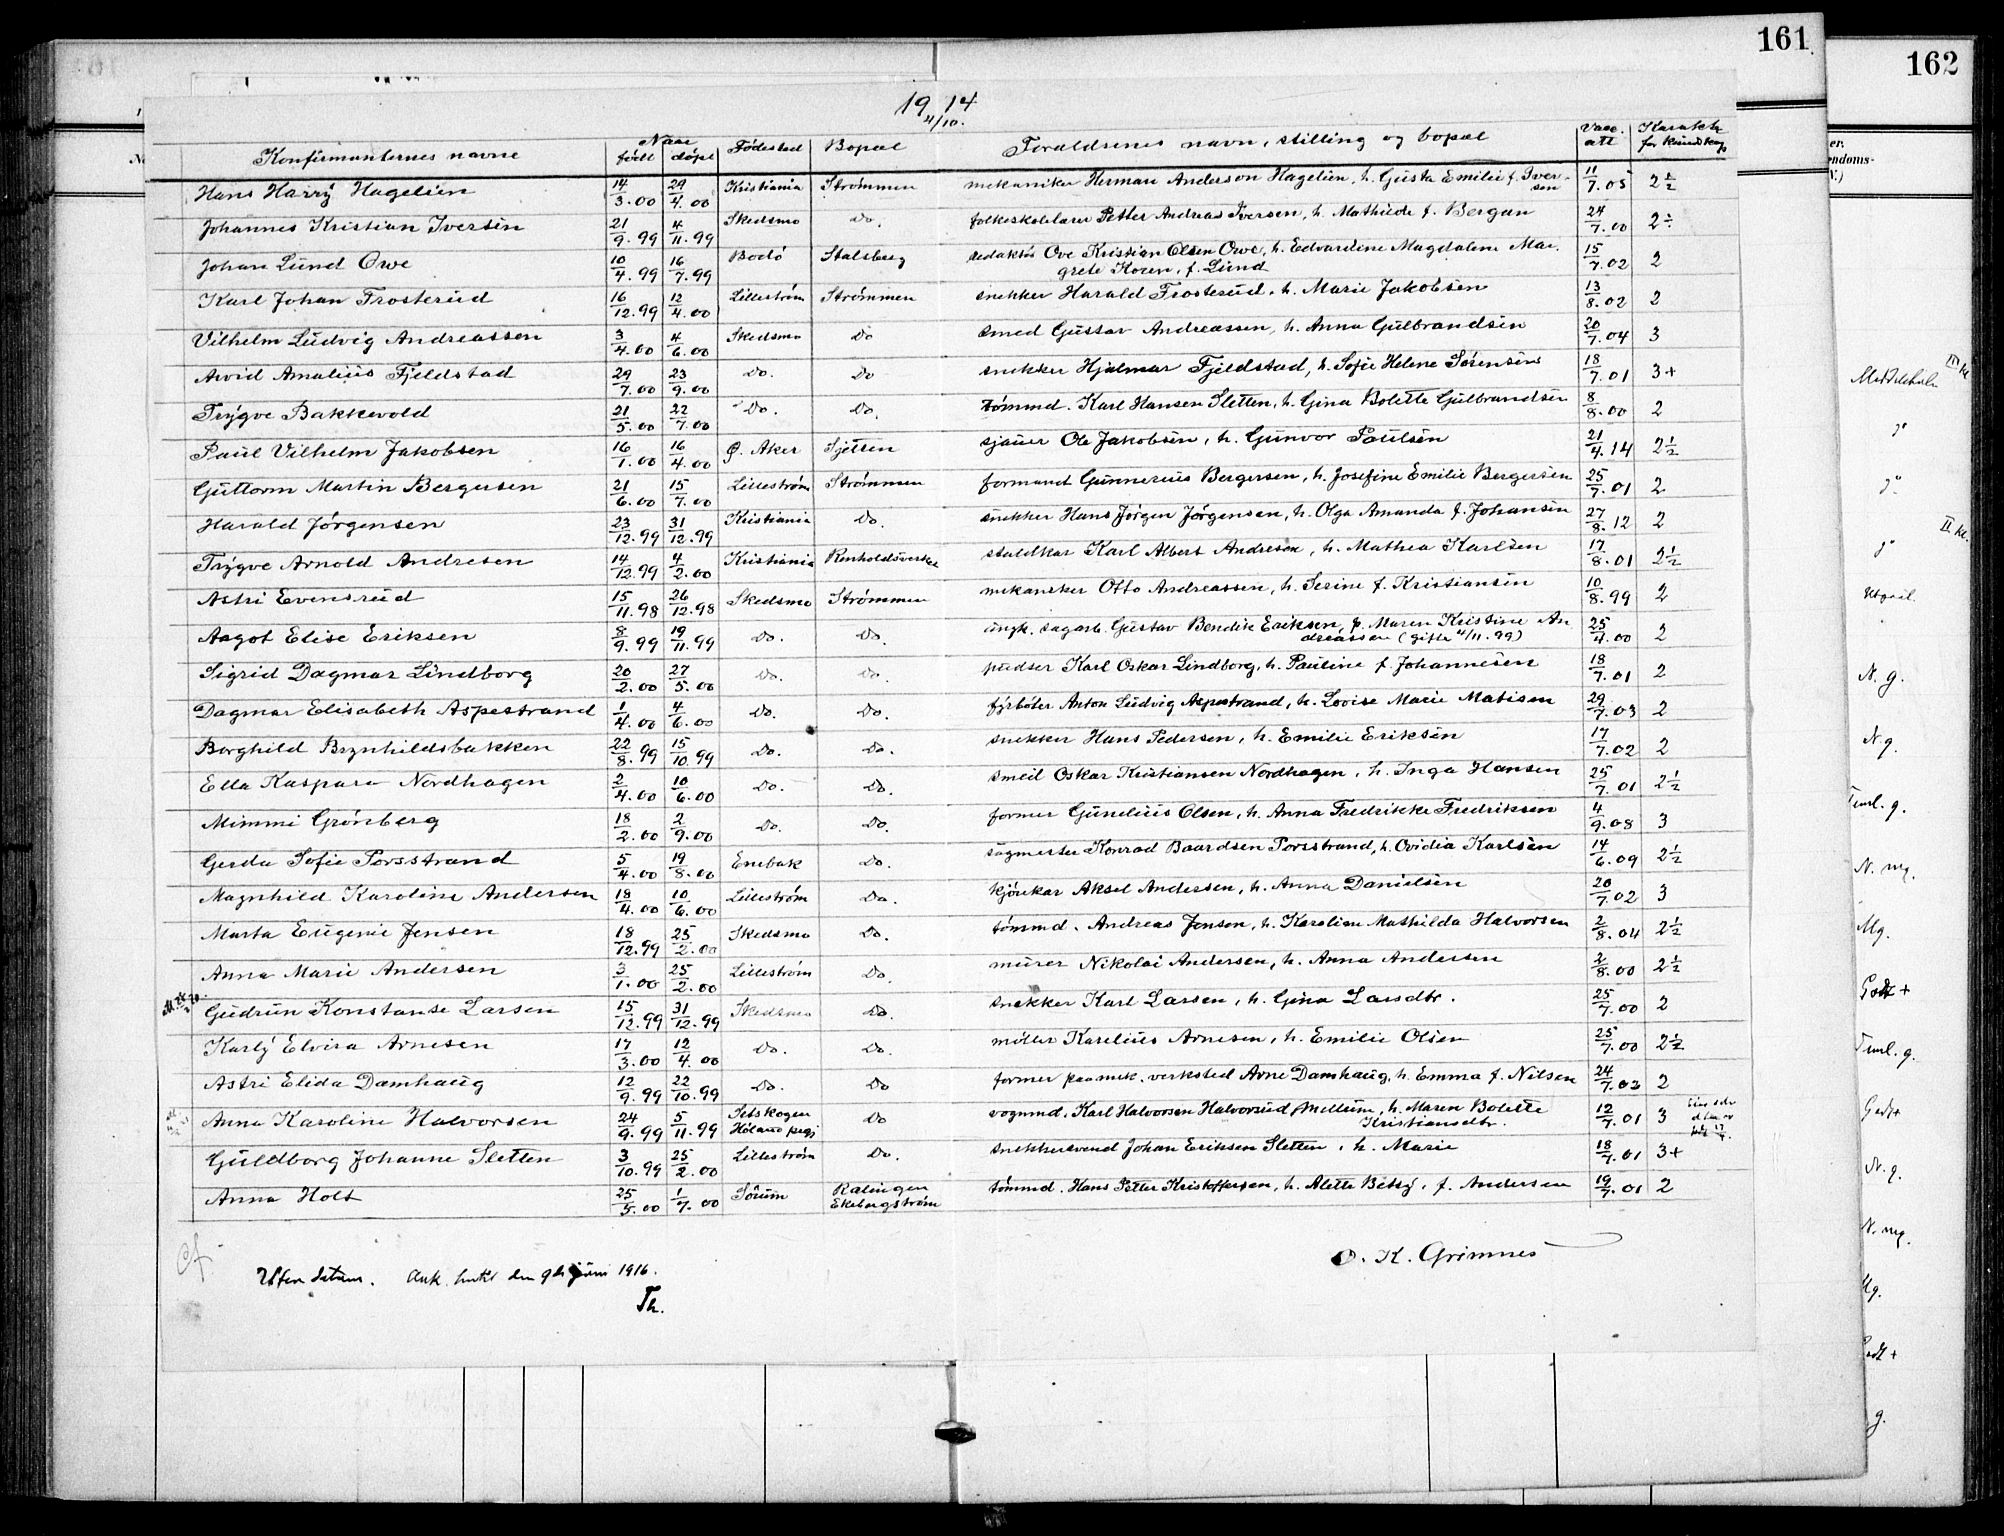 161
162
1914
4/10.
Konfirmanternes navne Naar født døpt Fødested Bopæl Forældrenes navn, stilling og bopæl Vacc. att Karakter for kundskap
Hans Harry Hagelien 14/3.00 29/4.00 Kristiania Strømmen mekaniker Herman Anderson Hagelien, h. Gusta Emilie f. Iversen 11/7.05 2½
Johannes Kristian Iversen 21/9.99 4/11.99 Skedsmo Do. folkeskolelærer Petter Andreas Iversen, h. Mathilde f. Bergan 24/7.00 2÷
Johan Lund Owe 10/4.99 16/7.99 Bodø Stalsberg redaktør Ove Kristian Olsen Owe, h. Edvardine Magdalene Mar-
grete Koren, f. Lund 15/7.02 2
Karl Johan Frosterud 16/12.99 12/4.00 Lillestrøm Strømmen snekker Harald Frosterud, h. Marie Jakobsen 13/8.02 2
Vilhelm Ludvig Andreassen 3/4.00 4/6.00 Skedsmo Do smed Gustav Andreassen, h. Anna Gulbrandsen 20/7.04 3
Arvid Amalius Fjeldstad 29/7.00 23/9.00 Do. Do snekker Hjalmar Fjeldstad, h. Sofie Helene Sørensen 18/7.01 3+
Trygve Bakkevold 21/5.00 22/7.00 Do. Do. tømmd. Karl Hansen Sletten, h. Gina Bolette Gulbrandsen 8/8.00 2
Paul Vilhelm Jakobsen 16/1.00 16/4.00 Ø. Aker Sjetten sjauer Ole Jakobsen, h. Gunvor Paulsen 21/4.14 2½
Guttorm Martin Bergersen 21/6.00 15/7.00 Lillestrøm Strømmen formand Gunnerius Bergersen, h. Josefine Emilie Bergersen 25/7.01 2
Harald Jørgensen 23/12.99 31/12.99 Kristiania Do. snekker Hans Jørgen Jørgensen, h. Olga Amanda f. Johansen 27/8.12 2
Trygve Arnold Andresen 14/12.99 4/2.00 Kristiania Renholdsverket staldkar Karl Albert Andresen, h. Mathea Karlsen 17/8.01 2½
Astri Evensrud 15/11.98 26/12.98 Skedsmo Strømmen mekansker Otto Andreassen, h. Serine f. Kristiansen 10/8.99 2
Aagot Elise Eriksen 8/9.99 19/11.99 Do. Do. ungk. sagarb. Gustav Bendik Eriksen, p. Maren Kristine An-
dreassen (gifte 4/11.99) 25/4.00 2
Sigrid Dagmar Lindborg 20/2.00 27/5.00 Do. Do. pudser Karl Oskar Lindborg, h. Pauline f. Johannesen 18/7.01 2
Dagmar Elisabeth Aspestrand 1/4.00 4/6.00 Do. Do. fyrbøter Anton Ludvig Aspestrand, h. Lovise Marie Matisen 29/7.03 2
Borghild Brynhildsbakken 22/8.99 15/10.99 Do. Do. snekker Hans Pedersen, h. Emilie Eriksen 17/7.02 2
Ella Kaspara Nordhagen 2/4.00 10/6.00 Do. Do. smed Oskar Kristiansen Nordhagen, h. Inga Hansen 25/7.01 2½
Mimmi Grønberg 18/2.00 2/9.00 Do. Do. former Gunelius Olsen, h. Anna Fredrikke Fredriksen 4/9.08 3
Gerda Sofie Porsstrand 5/4.00 19/8.00 Enebak Do. sagmester Konrad Baardsen Porsstrand, h. Ovidia Karlsen 14/6.09 2½
Magnhild Karoline Andersen 18/4.00 10/6.00 Lillestrøm Do. kjørekar Aksel Andersen, h. Anna Danielsen 20/7.02 3
Marta Eugenie Jensen 18/12.99 25/2.00 Skedsmo Do. tømmd. Andreas Jensen, h. Karoline Mathilda Halvorsen 2/8.04 2½
Anna Marie Andersen 3/1.00 25/2.00 Lillestrøm Do. murer Nikolai Andersen, h. Anna Andersen 2/8.00 2½
Gudrun Konstanse Larsen 15/12.99 31/12.99 Skedsmo Do. snekker Karl Larsen, h. Gina Larsdtr. 25/7.00 2
Karly Elvira Arnesen 17/3.00 12/4.00 Do. Do. møller Karelius Arnesen, h. Emilie Olsen 25/7.00 2½
Astri Elida Damhaug 12/9.99 22/10.99 Do. Do former paa mek. verksted Arne Damhaug, h. Emma f. Nilsen 24/7.03 2
Anna Karoline Halvorsen 24/9.99 5/11.99 Setskogen Høland prgj Do vognmd. Karl Halvorsen Halvorsrud Mellum, h. Maren Bolette
Kristiansdtr. 12/7.01 3
Guldborg Johanne Sletten 3/10.99 25/2.00 Lillestrøm Do. snekkersvend Johan Eriksen Sletten, h. Marie 18/7.01 3+
Anna Holt 25/5.00 1/7.00 Sørum Rælingen Ekebergstrøm tømmd. Hans Petter Kristoffersen, h. Alette Betsy, f. Andersen 19/7.01 2
O. K. Grimnes
Uten datum. Ank. hertil den 9de juni 1916.
Th.
er.
endoms-
V.)
III kl
Middelhøi
II kl.
N. g.
N. g.
Temml. g.
N. mg.
Mg.
Godt +
Teml. g.
Godt
N. g.
N. mg.
Mg.
Godt +
g.